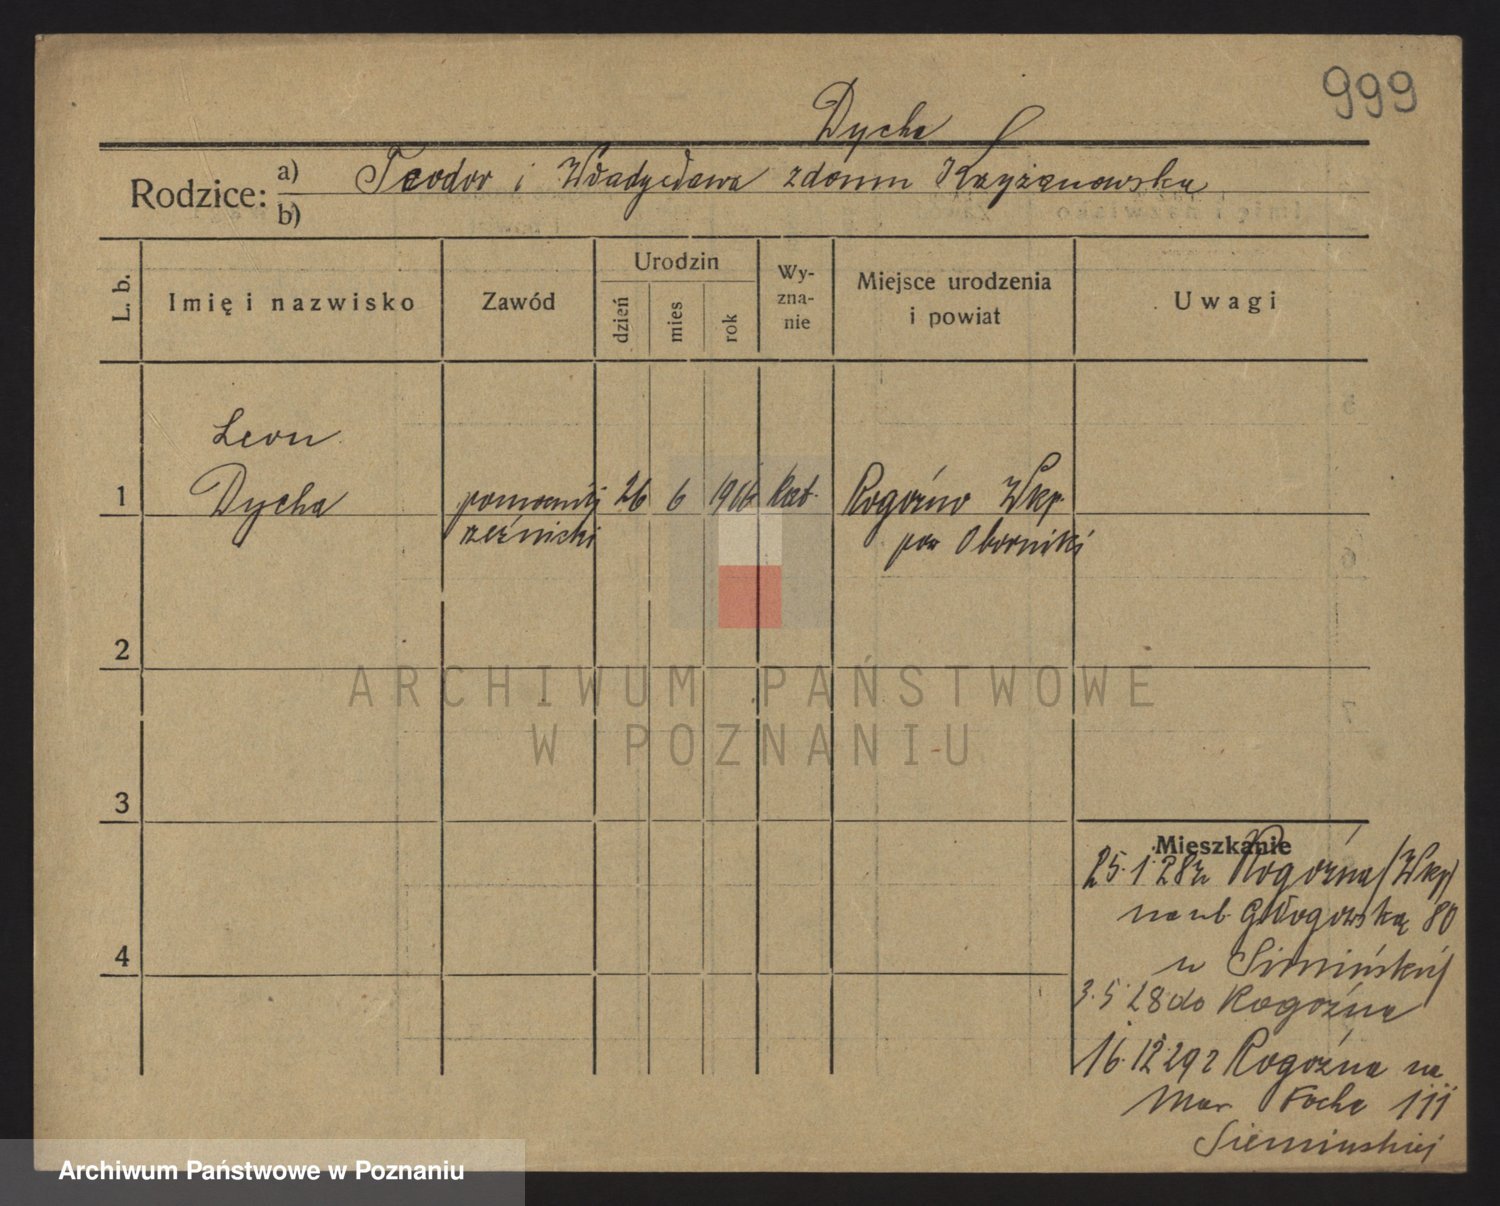 999
Dycha
Rodzice: a) Teodor i Władysława z domu Krzyżanowska
b)
L. b.
Imię i nazwisko
Zawód
Urodzin
dzień
mies
rok
Wy-
zna-
nie
Miejsce urodzenia
i powiat
Uwagi
Leon
1 Dycha pomocnik 26 6 1906 kat. Rogoźno Wkp
rzeźnicki pow Oborniki
2
3
4
Mieszkanie
25.1.28 z Rogoźna (Wkp)
na ul. Głogowską 80
u Siemińskiej
3.5.28 do Rogoźna
16.12.29 z Rogoźna na
Mar Focha 111
Siemińskiej
ARCHIWUM PAŃSTWOWE
W POZNANIU
Archiwum Państwowe w Poznaniu